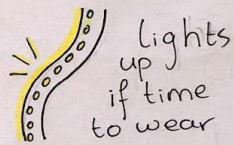 lights
up
if time
to wear